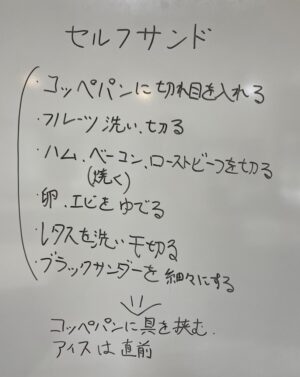 セルフサンド
・コッペパンに切れ目を入れる
・フルーツ洗い、切る
・ハム、ベーコン、ローストビーフを切る
(焼く)
・卵、エビをゆでる
・レタスを洗い千切る
・ブラックサンダーを細々にする
コッペパンに具を挟む.
アイスは直前